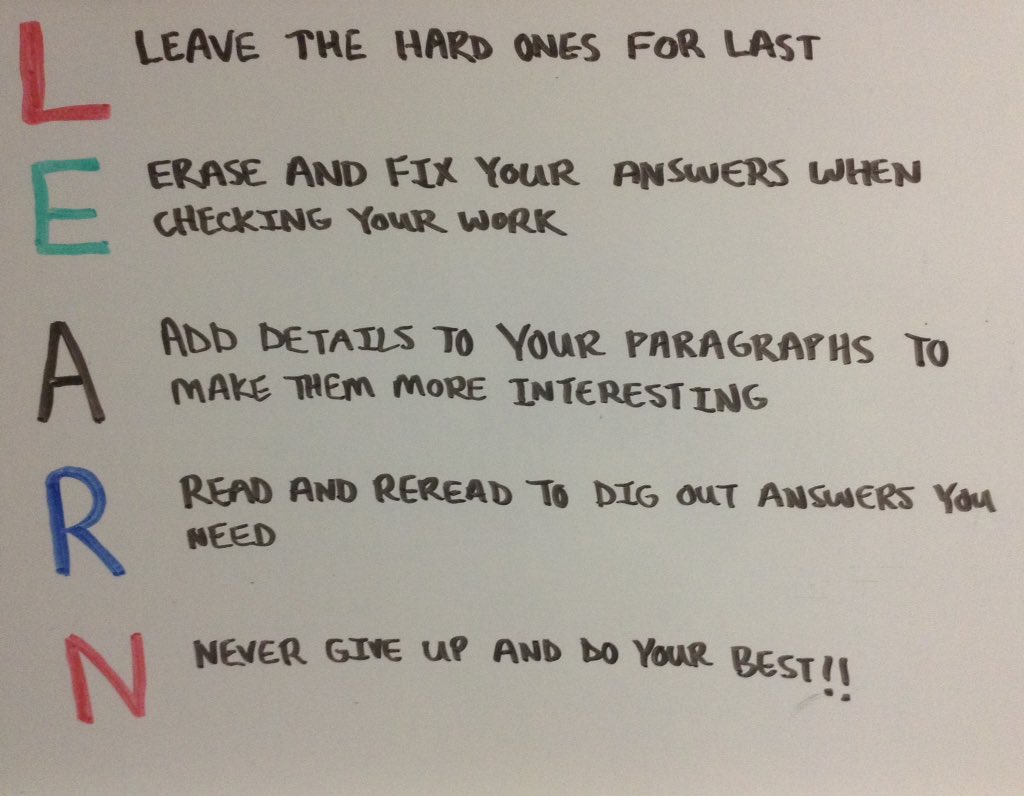 L LEAVE THE HARD ONES FOR LAST
E ERASE AND FIX YOUR ANSWERS WHEN
CHECKING YOUR WORK
A ADD DETAILS TO YOUR PARAGRAPHS TO
MAKE THEM MORE INTERESTING
R READ AND REREAD TO DIG OUT ANSWERS YOU
NEED
N NEVER GIVE UP AND DO YOUR BEST!!